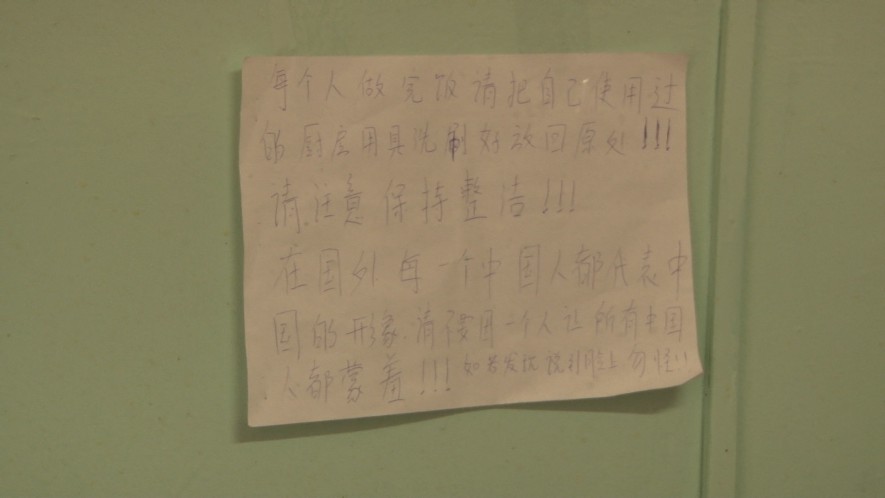 每个人做完饭请把自己使用过
的厨房用具洗刷好放回原处!!!
请注意保持整洁!!!
在国外每一个中国人都代表中
国的形象.请 用一个人让所有中国
人都蒙羞!!! 如若发现 说到脸上 勿怪!!